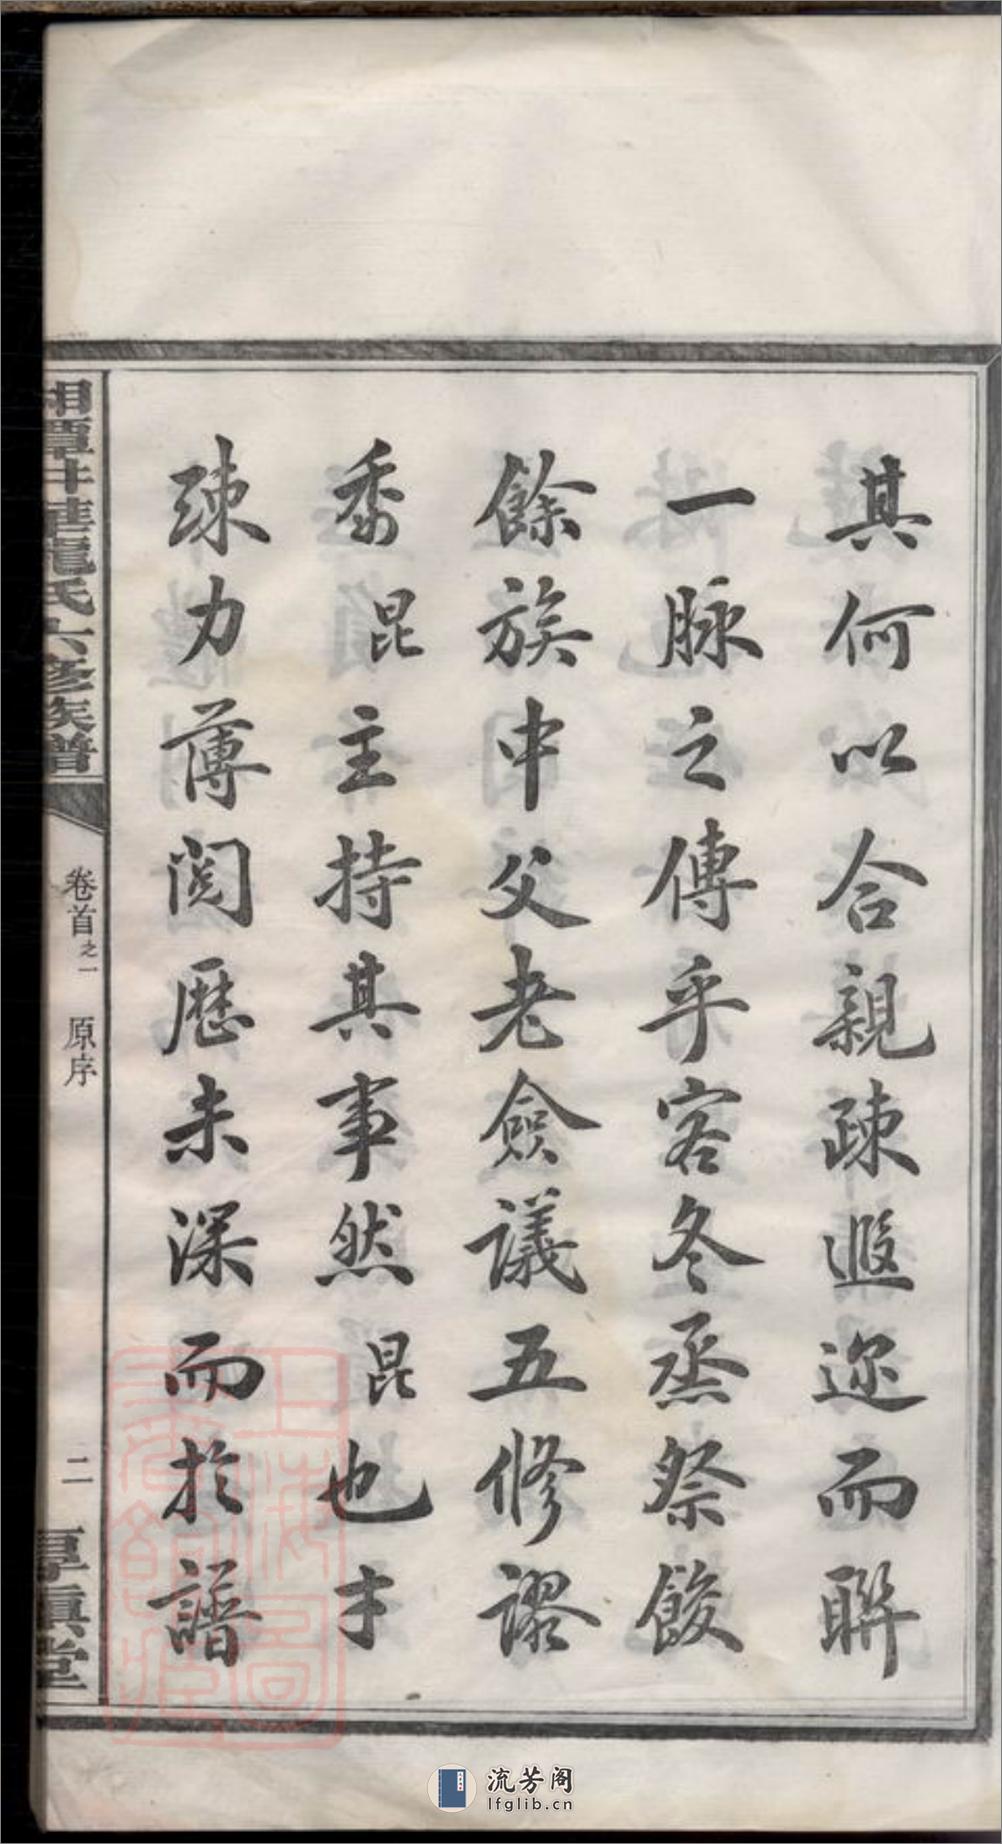 其何以合親疎遐迩而聯
一脉之傳乎客冬烝祭餕
餘族中父老僉議五修謬
委昆主持其事然昆也才
疎力薄閲歷未深而於譜
湘潭牛鞾龍氏六修族譜
卷首之一 原序
二
厚慎堂
上海圖書館藏
流芳阁
lfglib.cn